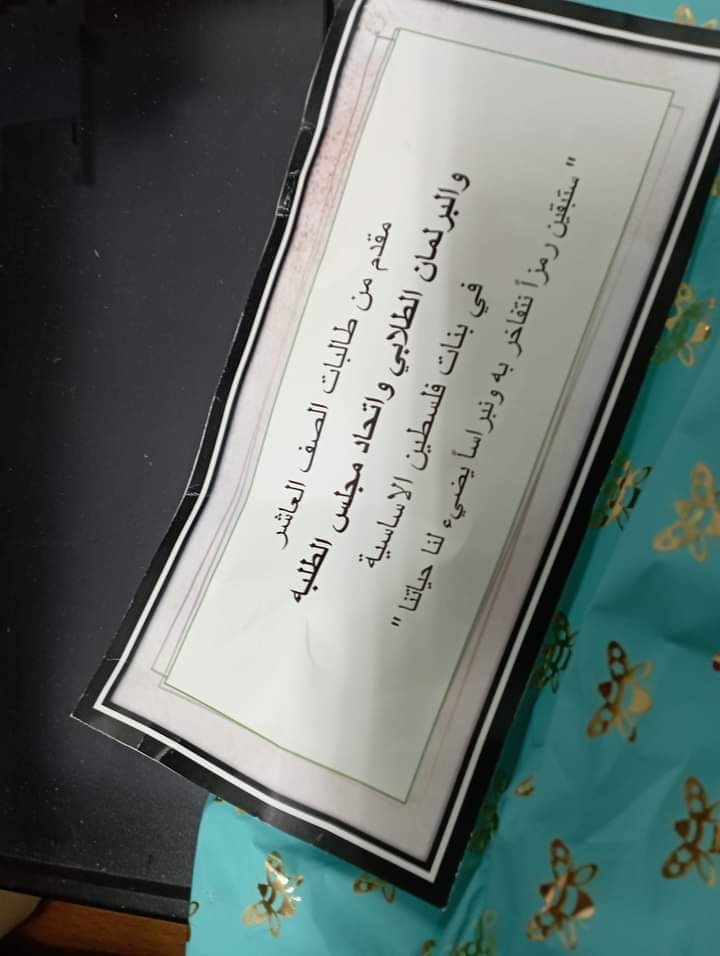 مقدم من طالبات الصف العاشر
والبرلمان الطلابي واتحاد مجلس الطلبه
في بنات فلسطين الاساسية
" ستبقين رمزاً نتفاخر به ونبراساً يضيء لنا حياتنا "